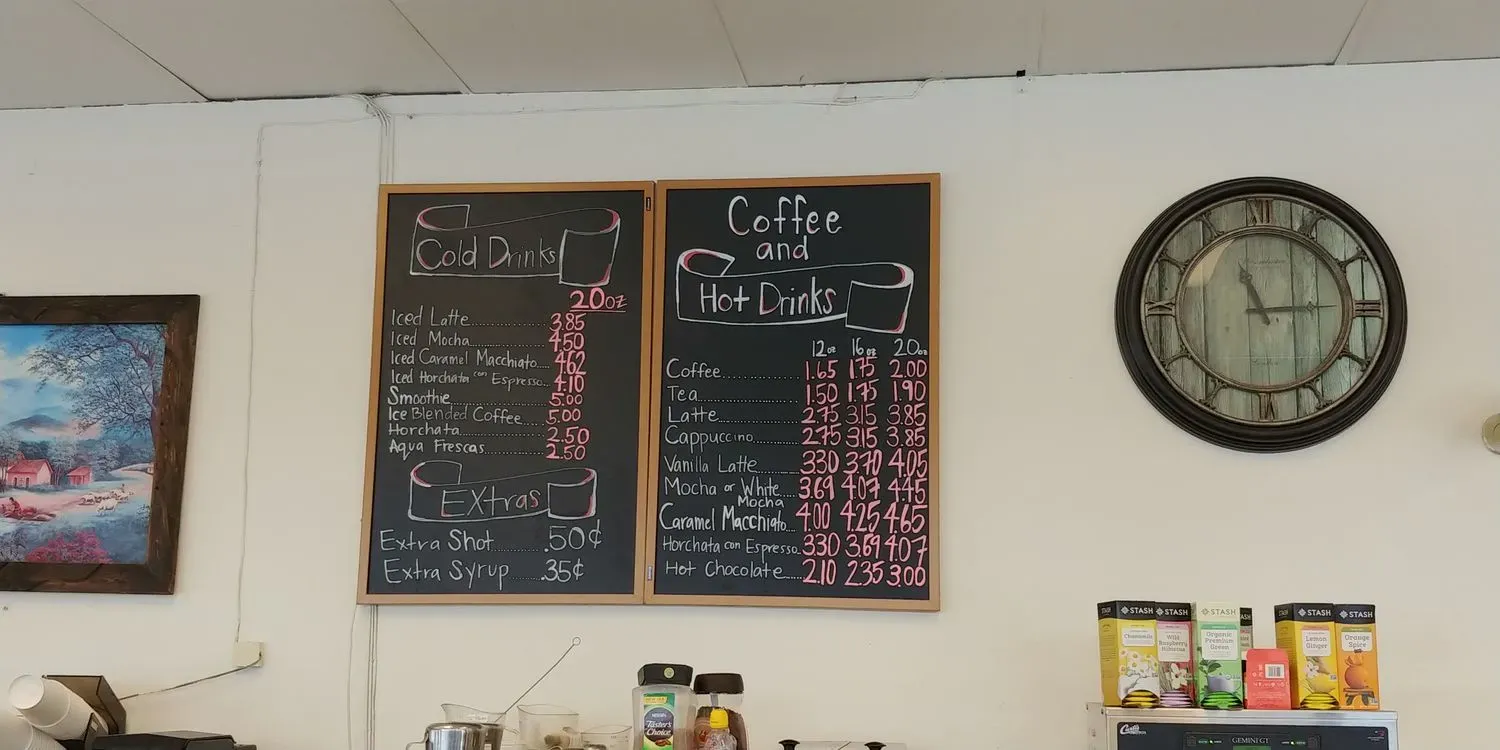 Cold Drinks
20oz
Iced Latte 3.85
Iced Mocha 4.50
Iced Caramel Macchiato 4.62
Iced Horchata con Espresso 4.10
Smoothie 5.00
Ice Blended Coffee 5.00
Horchata 2.50
Aqua Frescas 2.50
Extras
Extra Shot .50¢
Extra Syrup .35¢
Coffee
and
Hot Drinks
12oz 16oz 20oz
Coffee 1.65 1.75 2.00
Tea 1.50 1.75 1.90
Latte 2.75 3.15 3.85
Cappuccino 2.75 3.15 3.85
Vanilla Latte 3.30 3.70 4.05
Mocha or White Mocha 3.69 4.07 4.45
Caramel Macchiato 4.00 4.25 4.65
Horchata con Espresso 3.30 3.69 4.07
Hot Chocolate 2.10 2.35 3.00
STASH
Chamomile
STASH
Wild
Raspberry
Hibiscus
STASH
Organic
Premium
Green
STASH
STASH
Lemon
Ginger
STASH
Orange
Spice
NESCAFÉ
Taster's
Choice
Curtis
GEMINI GT